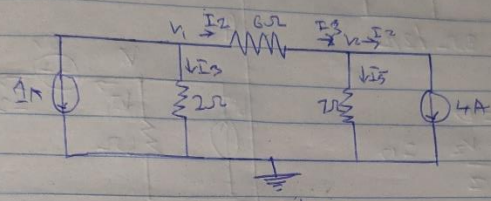 V₁ → I2 6Ω I3 → V₂ → I2
↓I3 ↓I5
1A 2Ω 7Ω 4A